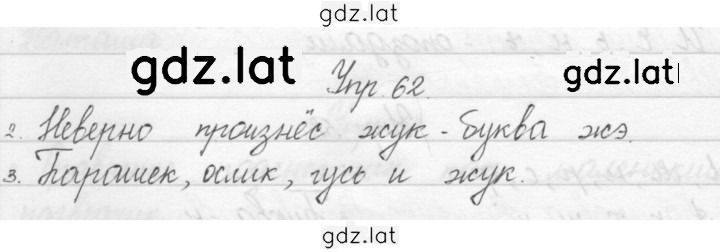 gdz.lat
gdz.lat
gdz.lat
Упр. 62.
2. Неверно произнёс жук - буква жэ.
3. Барашек, ослик, гусь и жук.
gdz.lat